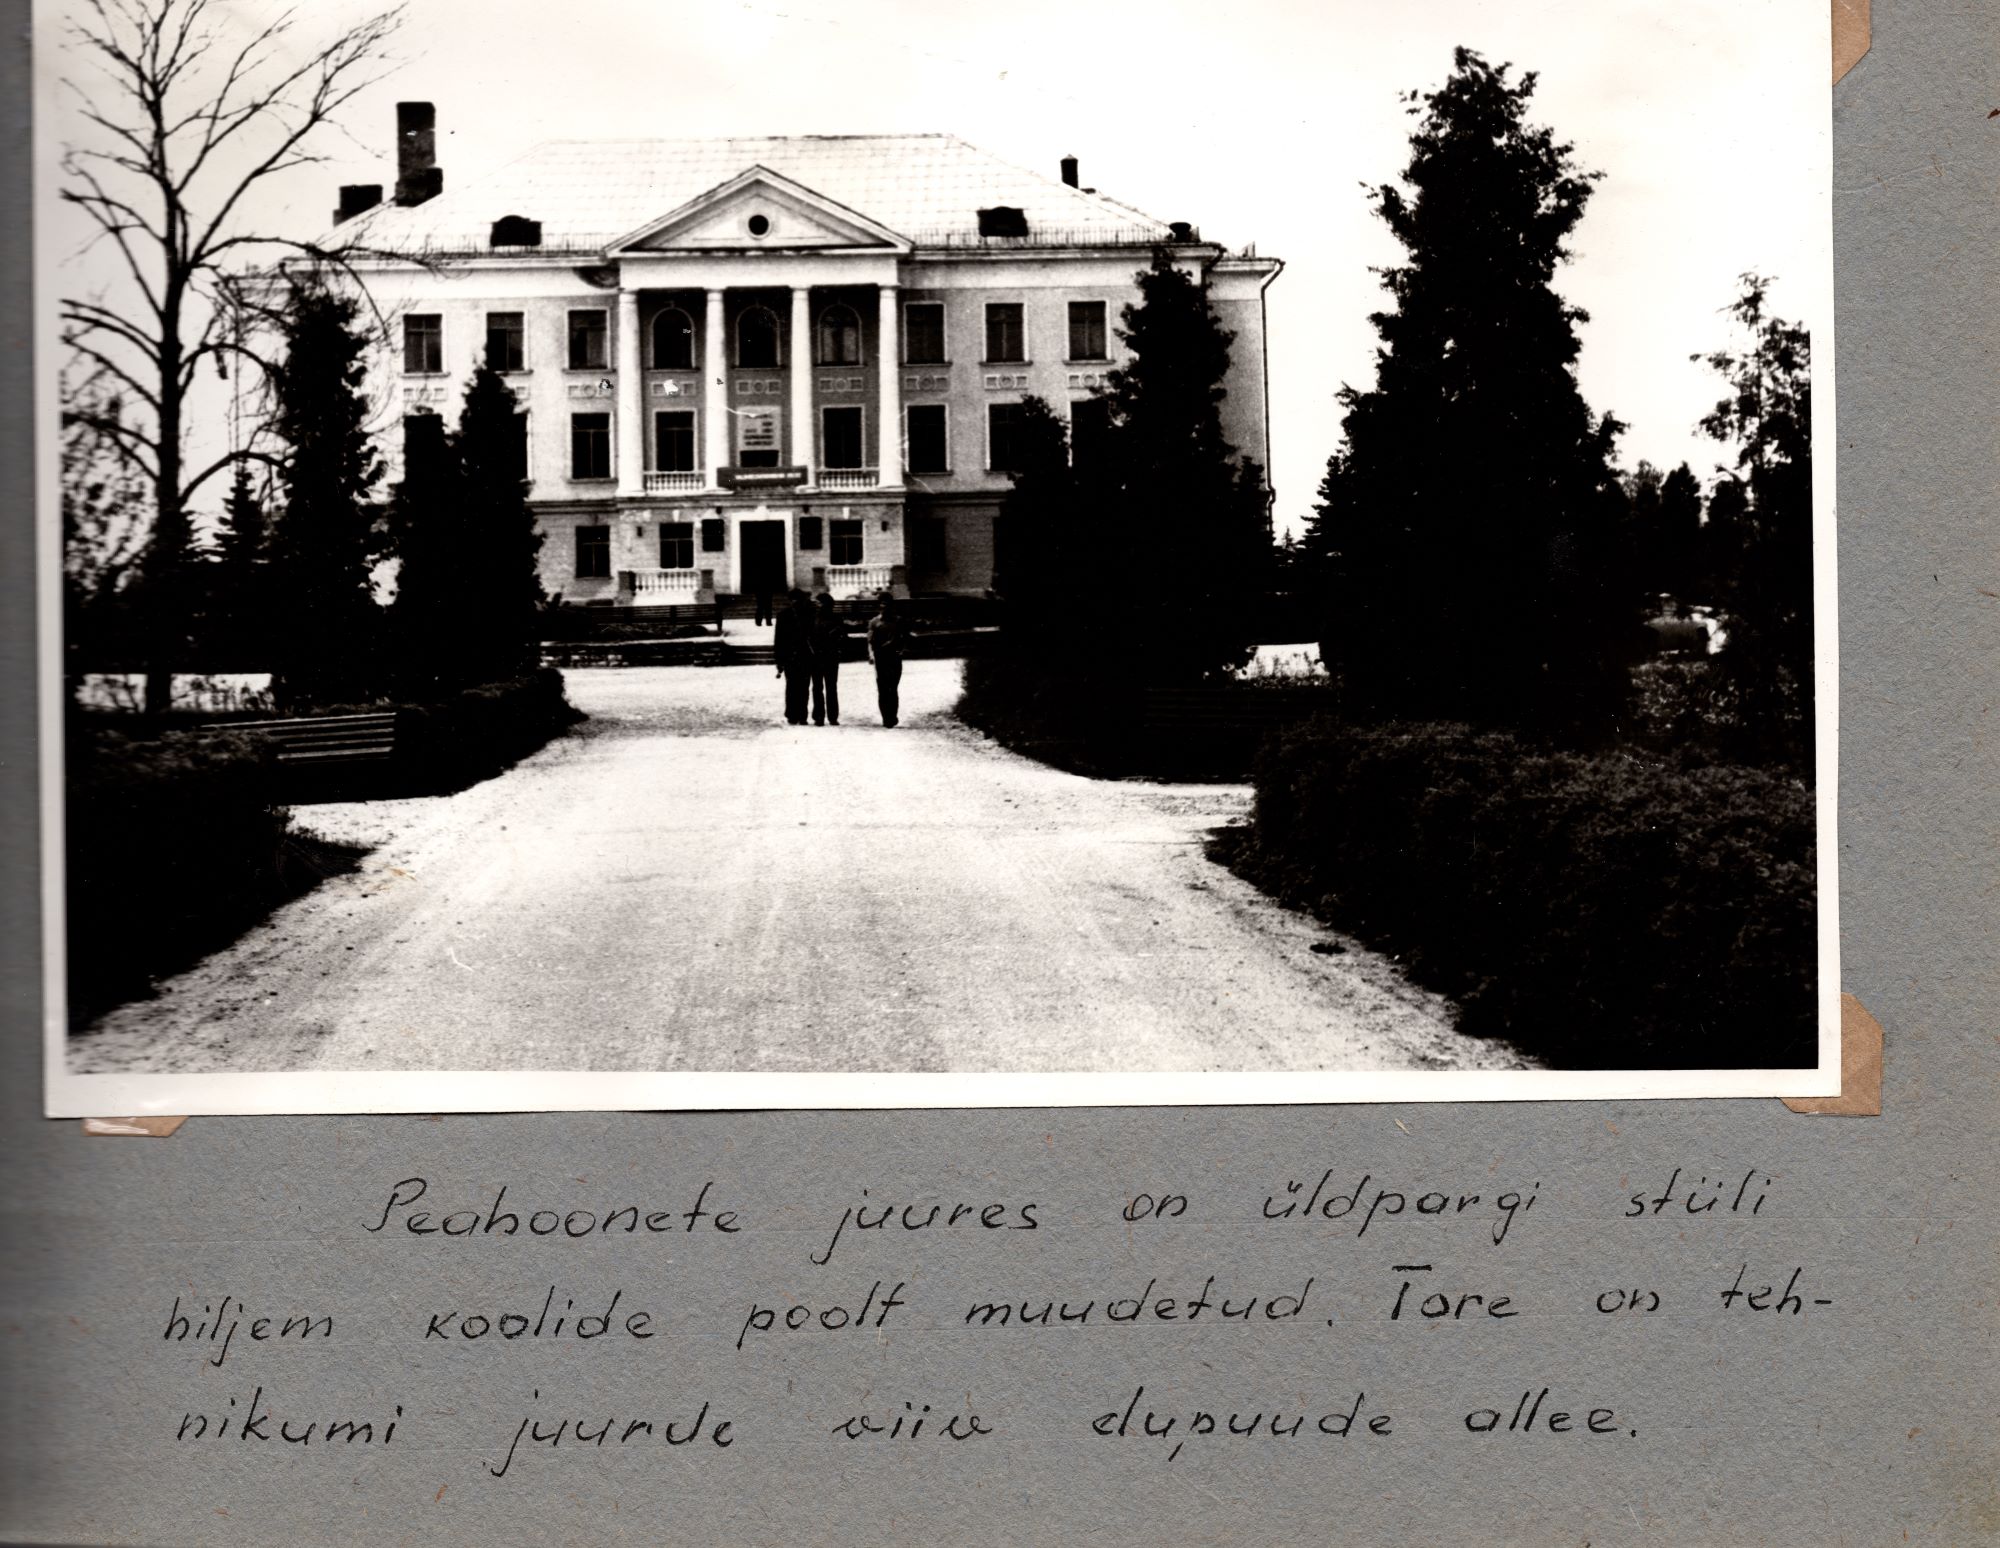 Peahoonete juures on üldpargi stiili
hiljem koolide poolt muudetud. Tore on teh-
nikumi juurde viiv elupuude allee.